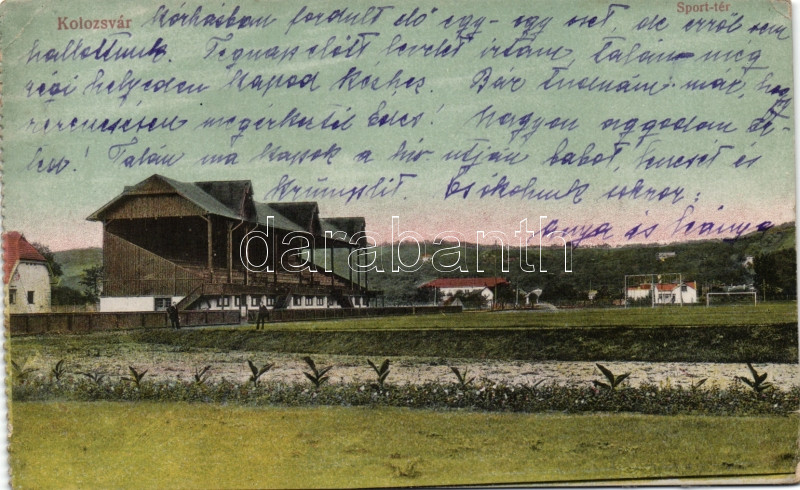 Kolozsvár
Sport-tér
Kórházban fordult elő egy-egy eset, de erről sem
hallottunk. Tegnap előtt levelet írtam talán még
régi helyeden kapod kézhez. Bár tudnám már, hogy
szerencsésen megérkeztél Édes! Nagyon aggodom
Talán ma kapok a hív utján babot, lencsét és
krumplit. Csókolnak sokszor:
anya és Iránya
darabanth